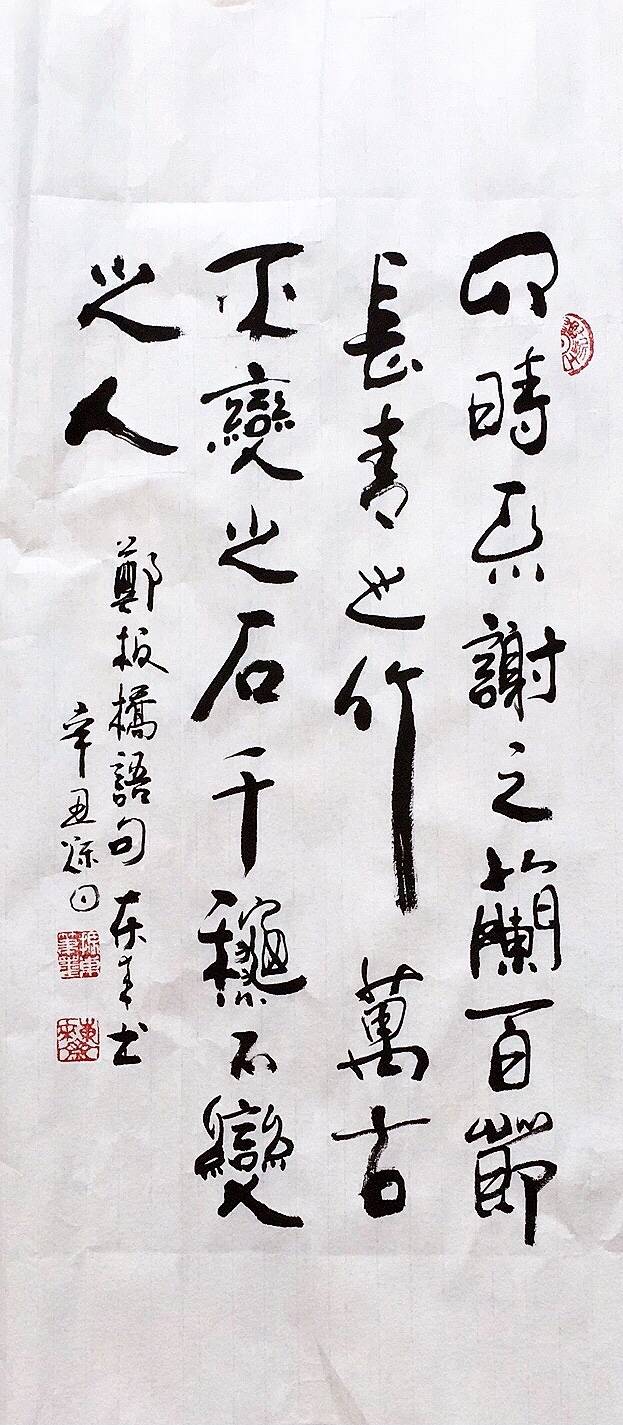 四時不謝之蘭百節
長青之竹萬古
不變之石千穐不變
之人
鄭板橋語句 东来书
辛丑 日